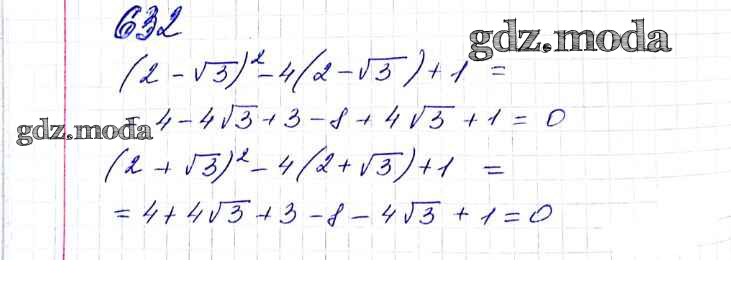 632
gdz.moda
(2 - √3)² - 4(2 - √3) + 1 =
gdz.moda
= 4 - 4√3 + 3 - 8 + 4√3 + 1 = 0
(2 + √3)² - 4(2 + √3) + 1 =
= 4 + 4√3 + 3 - 8 - 4√3 + 1 = 0